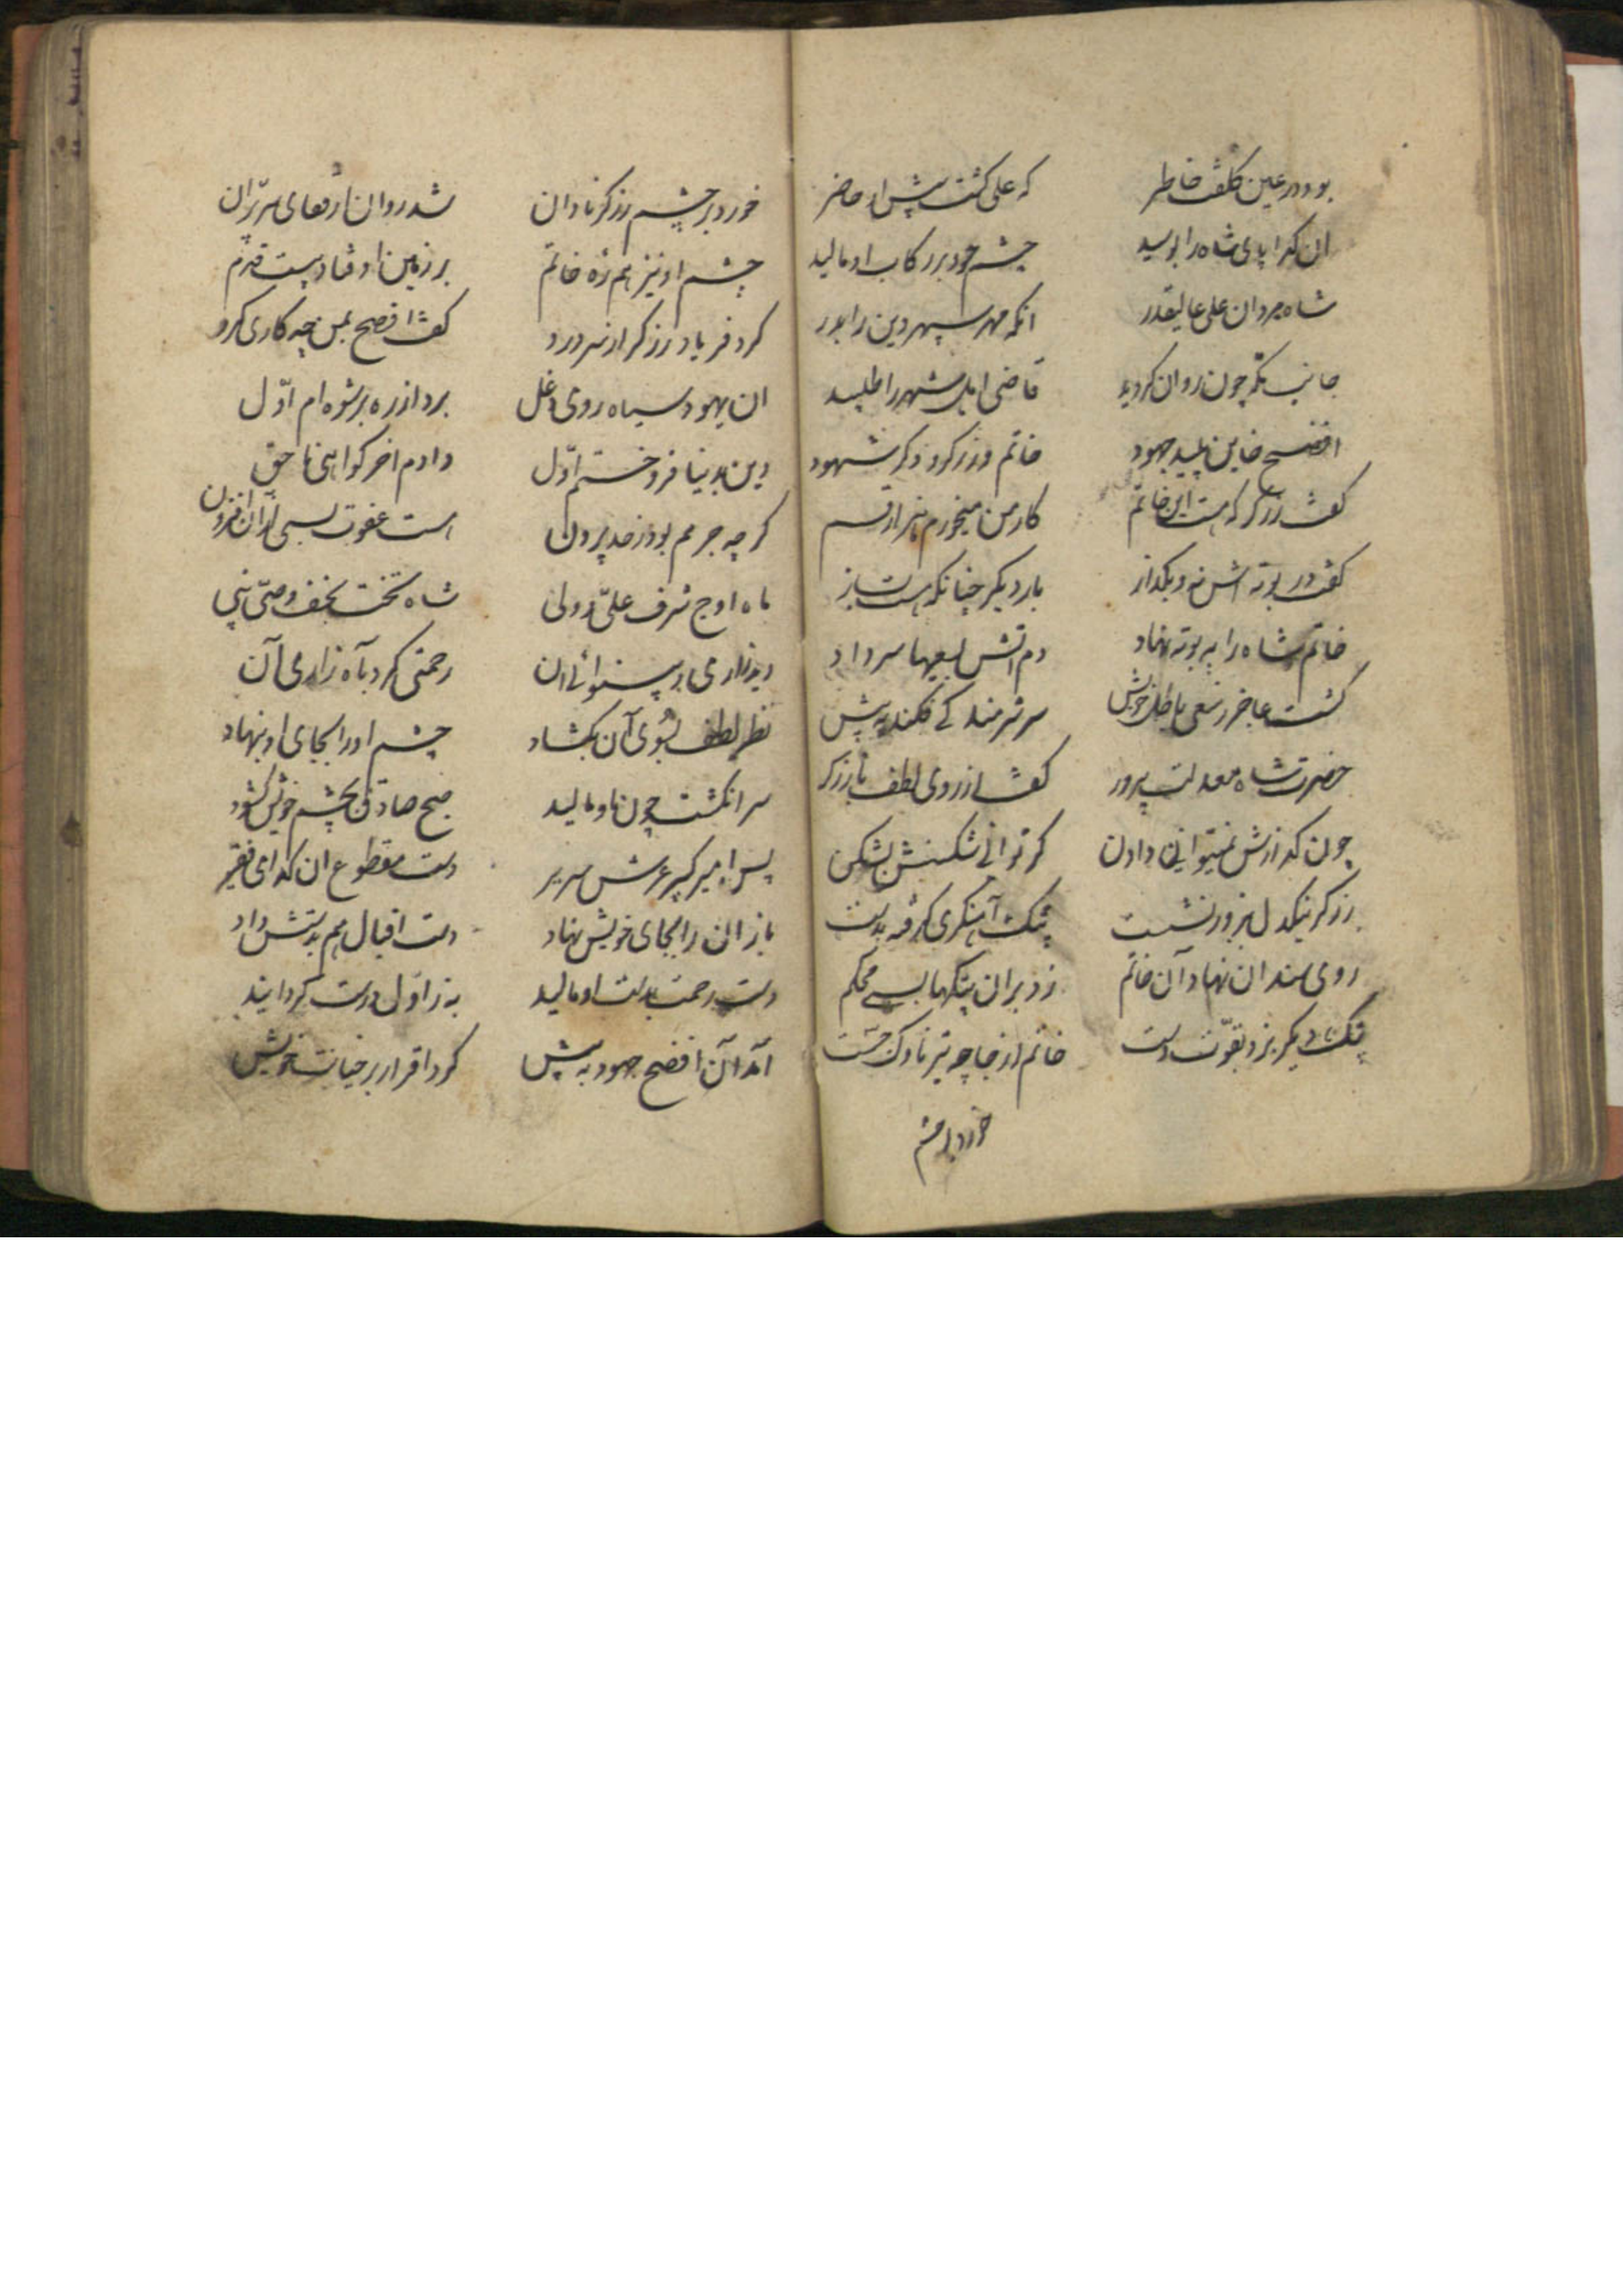 بود در عین کلفت خاطر که علی کشت پیش او حاضر
ان کدا پای شاه را بوسید چشم خود بر رکاب او مالید
شاه مردان علی عالیقدر انکه مهر سپهر دین را بدر
جانب تکر چون روان کردید قاضی اهل شهر را طلبید
افضح خاین پلید جهود خاتم و زرکر و دکر شهود
کفت زرکر که هست این خاتم کار من میخورم هزار قسم
کفت در بوته اش نه و بکداز بار دیکر چنانکه هست بساز
خاتم شاه را به بوته نهاد دم آتش بسعیها سر داد
کشت عاجز ز سعی باطل خویش سر شرمندکی فکند به پیش
حضرت شاه معدلت پرور کفت از روی لطف با زرکر
چون کدازش نمیتوانی دادن کر توانی شکستنش بشکن
زرکر نیکدل بزور نشست پتک آهنکری کرفته بدست
روی سندان نهاد آن خاتم زد بر آن پتکها بسی محکم
پتک دیکر بزد بقوت دست خاتم از جا چو تیر ناوک جست
خورد بر چشم
خورد بر چشم زرکر نادان شد روان از قفای سر پران
چشم او نیز هم زه خاتم بر زمین اوفتاد پست قدم
کرد فریاد زرکر از سر درد کفت افضح بمن چه کاری کرد
ان یهود سیاه روی دغل برد از ره برشوه ام اوّل
دین بدنیا فروختم اوّل دادم اخر کواهی ناحق
کرچه جرمم بود ز حد بیرون است عفوت بسی از ان افزون
ماه اوج شرف علیّ ولی شاه تخت نجف وصیّ نبی
دید زاری و بینوائی ان رحمتی کرد بآه زاری آن
نظر لطف بسوی آن بکشاد چشم او را بجای او بنهاد
سر انکشت چون باو مالید صبح صادق بچشم خویش کشود
پس امیر کبیر عرش سریر دست مقطوع ان کدای فقیر
باز انرا بجای خویش نهاد دست اقبال هم بدستش داد
دست رحمت بدست او مالید به ز اوّل درست کردانید
آمد آن افضح جهود به پیش کرد اقرار بر خیانت خویش